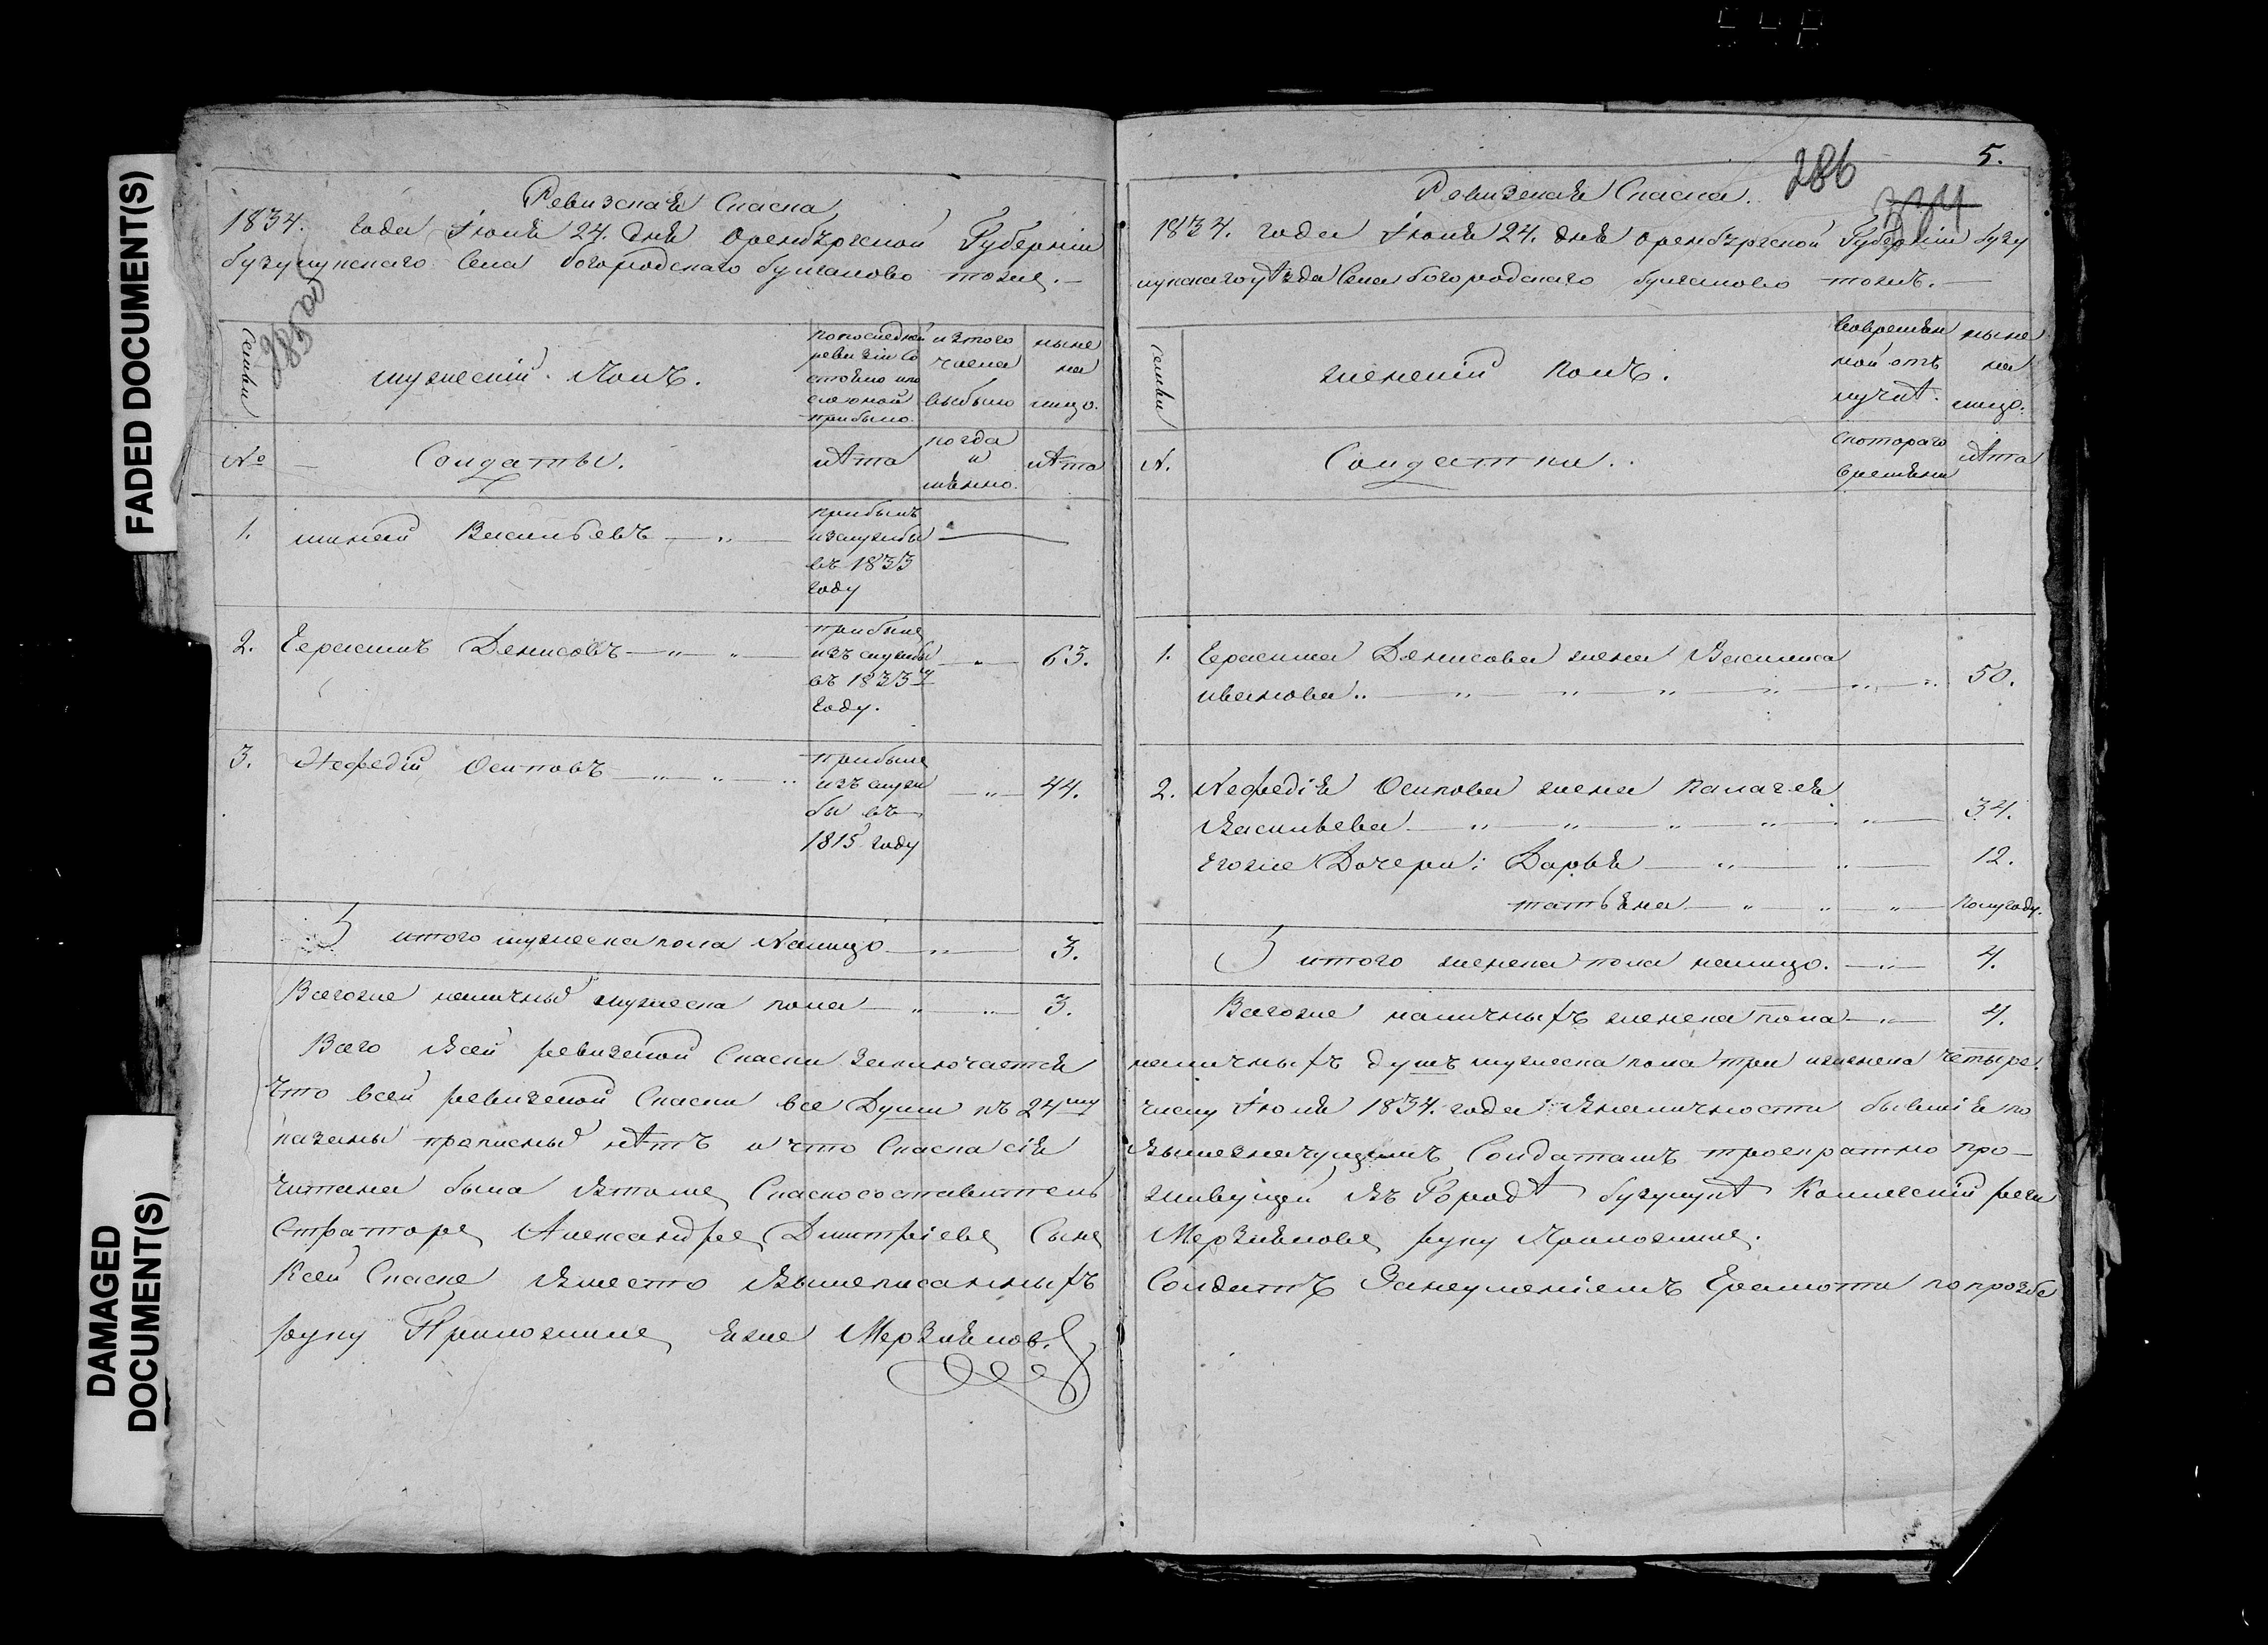 FADED DOCUMENT(S)
DAMAGED
DOCUMENT(S)
Ревизская Скаска
1834. года Июня 24. дня Оренбургской Губерніи
бузулукскаго Села богородскаго тожъ.
семьи
мужескій полъ.
попоследней
ревизіи со
стояло или
послѣ оной
прибыло.
изтого
числа
выбыло
ныне
на
лицо.
№
Солдаты.
лѣта
когда
и
имѣнно.
лѣта
1. миней Васильевъ
прибылъ
изслужбы
въ 1833
году
2. Герасимъ Денисовъ
прибылъ
изъ службы
въ 1833
году.
63.
3. Нефедій Осиповъ
прибылъ
изъ служ
бы въ
1815 году
44.
итого мужеска пола Налицо 3.
Всегоже наличных мужеска пола 3.
Всего Всей ревизской Скаски Заключается
Что всей ревизской Скаски все Души къ 24му
казаны прописных нѣтъ и что Скаска сія
читана была Скаскосоставитель
стратора Александра Дмитріева Сына
Ксей Скаске Вместо Вышеписанныхъ
руку Приложилъ
286
5.
Ревизская Скаска.
1834. года Июня 24. дня Оренбургской Губерніи бузу
лукскагоуѣзда Села богородскаго тожъ.
семьи
женскій полъ.
Вовремян
ной отъ
лучкѣ.
ныне
на
лицо.
№.
Солдатки.
Скотораго
времѣни
лѣта
1. Герасима Денисова жена Василиса
иванова 50.
2. Нефедія Осипова жена Палагея
Васильева 34.
Егоже Дочери: Дарья 12.
татьяна полугоду.
итого женска пола налицо. 4.
Всегоже наличныхъ женска пола 4.
наличныхъ душъ мужеска пола три иженска четыре.
числу Июня 1834. года Вналичности бывшія по
Солдатамъ троекратно про-
живущей Въ Городѣ бузулукѣ Колескій реги
руку Приложилъ.
Солдатъ Занеумѣніемъ Грамоты попрозбе